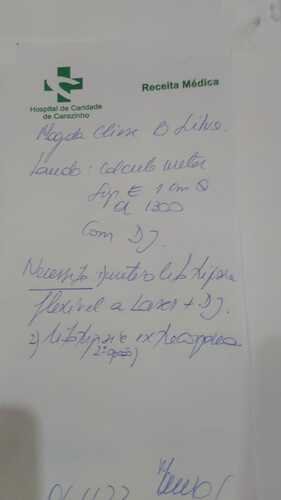 Hospital de Caridade
de Carazinho
Receita Médica
Magda Cliese B Silva.
Laudo: Calculo ureter
Sup E 1 cm
1300
Com DJ.
Necessita ureterolitotripsia
flexível a Laser + DJ.
2) litotripsia extracorporea
2ª opção)